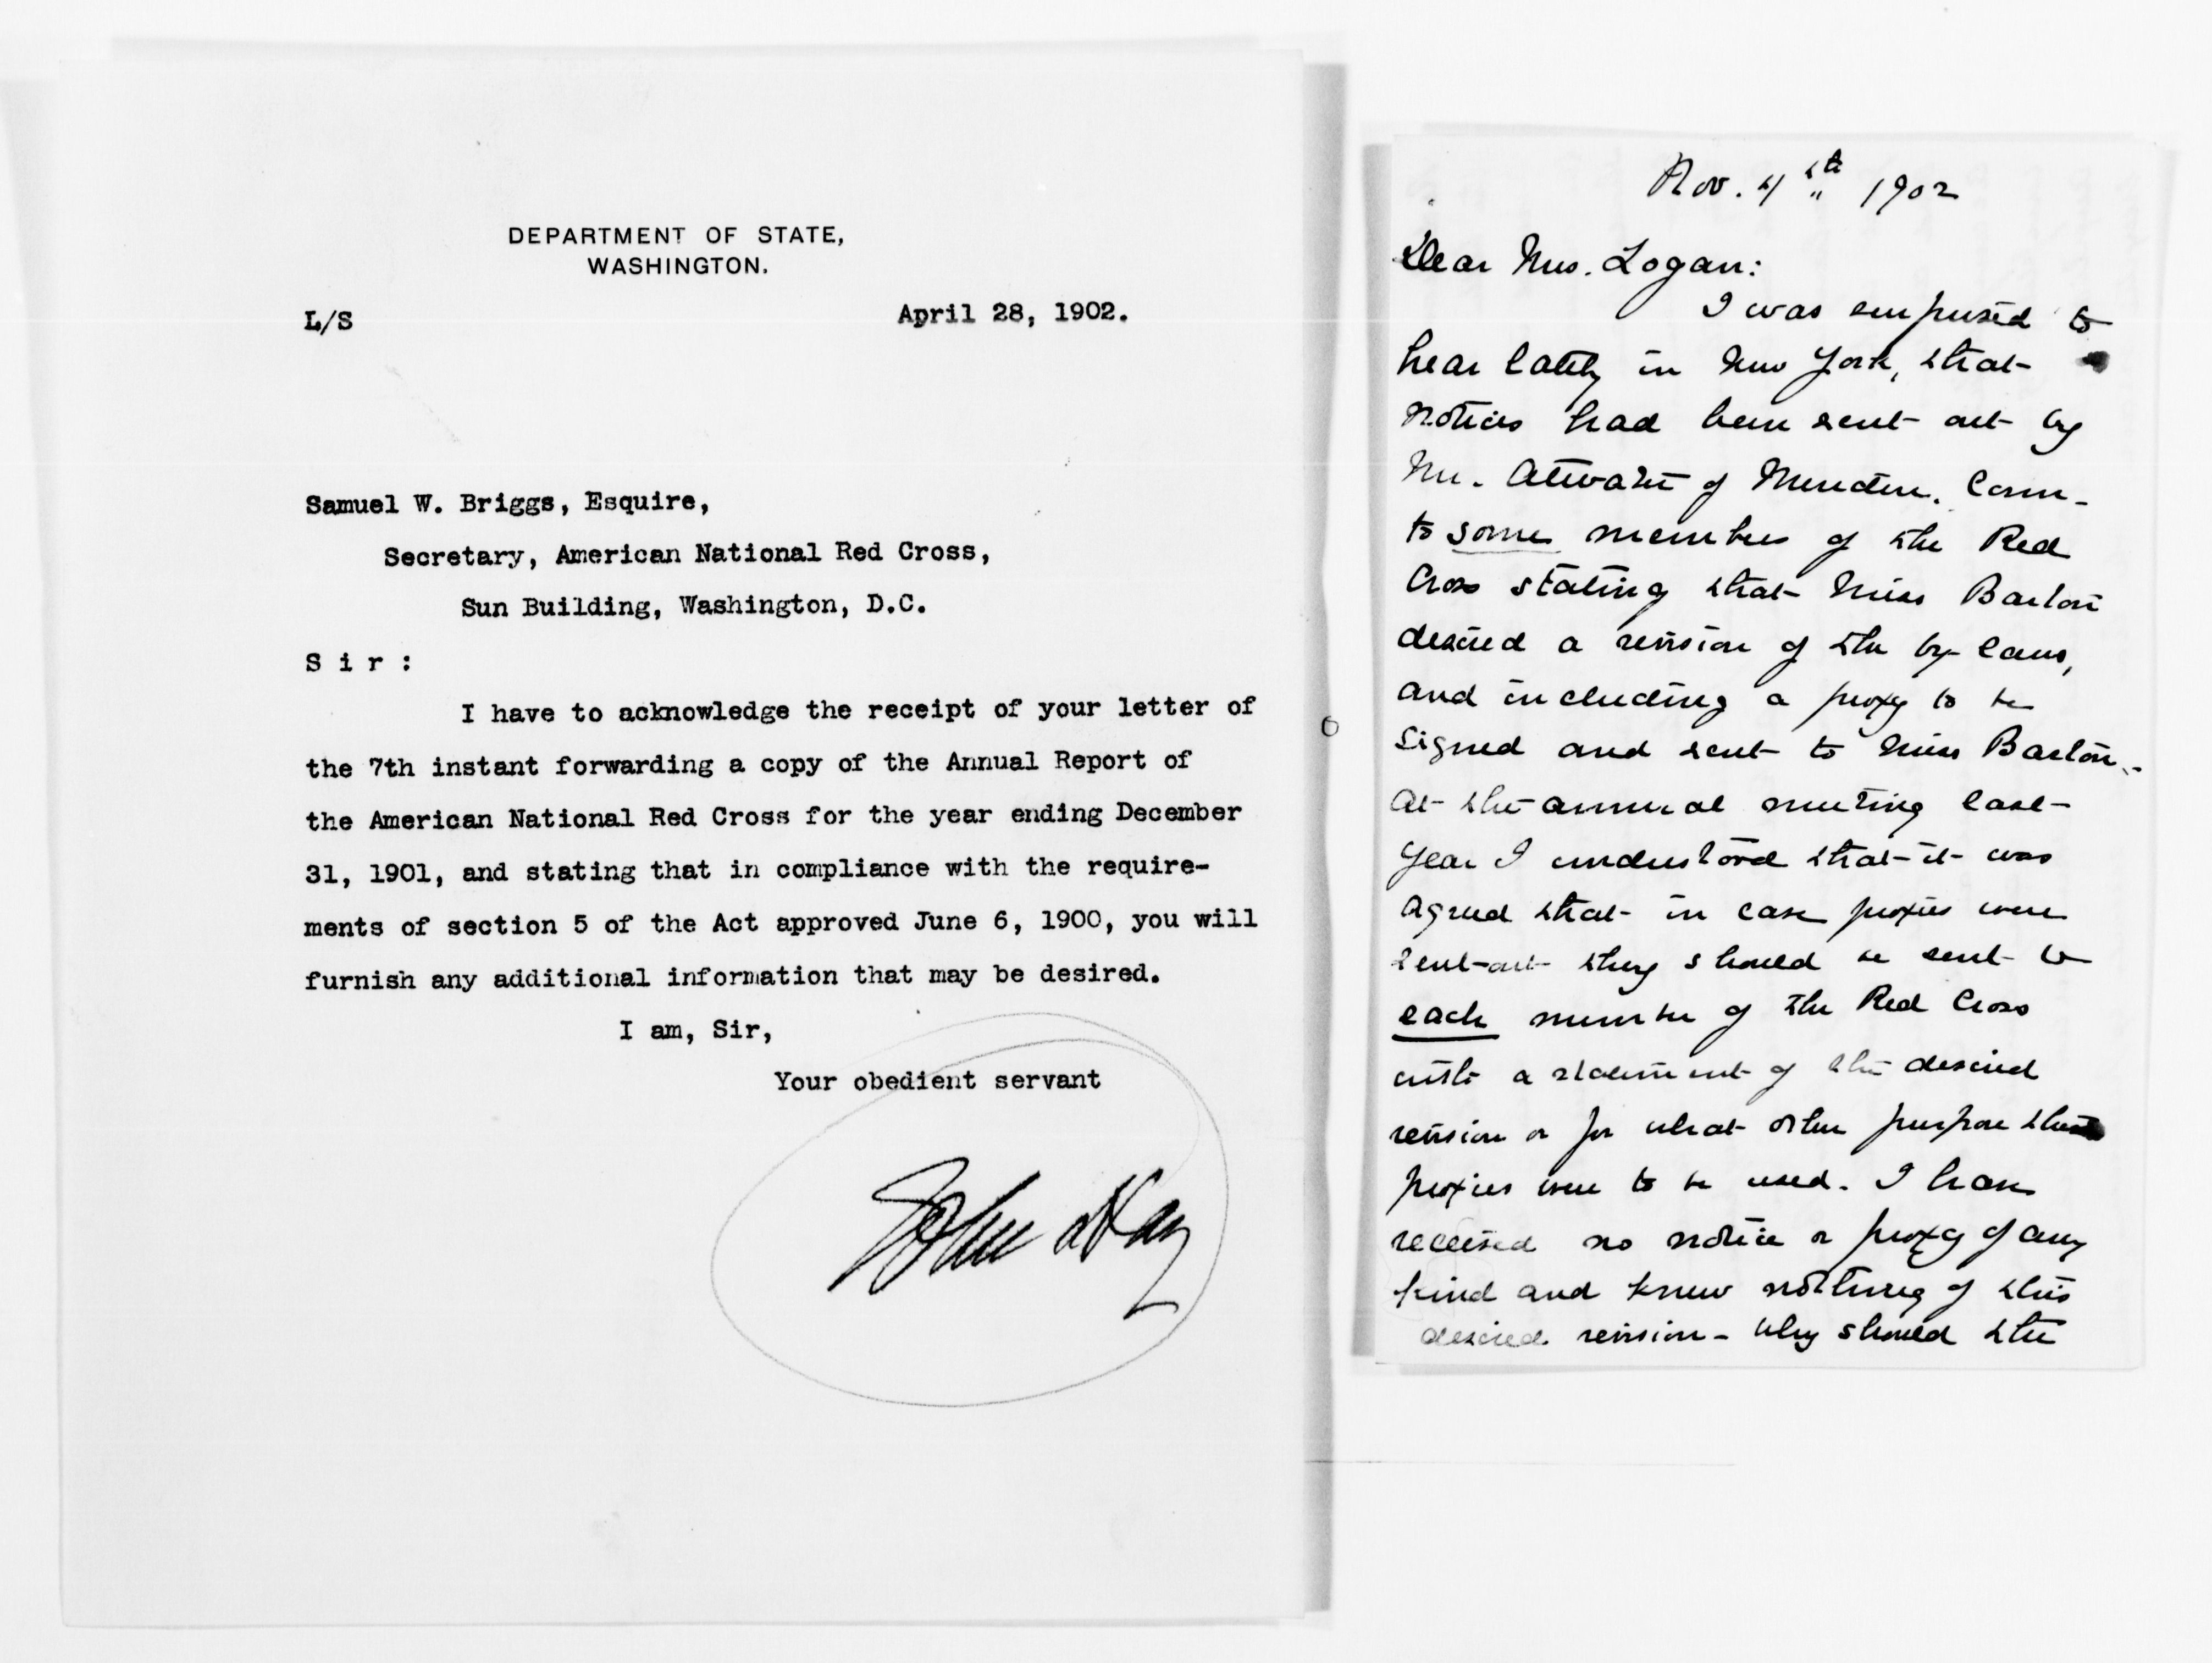 DEPARTMENT OF STATE,
WASHINGTON.
L/S April 28, 1902.
Samuel W. Briggs, Esquire,
Secretary, American National Red Cross,
Sun Building, Washington, D.C.
Sir:
I have to acknowledge the receipt of your letter of
the 7th instant forwarding a copy of the Annual Report of
the American National Red Cross for the year ending December
31, 1901, and stating that in compliance with the require-
ments of section 5 of the Act approved June 6, 1900, you will
furnish any additional information that may be desired.
I am, Sir,
Your obedient servant
John Hay
Nov. 4th 1902
Dear Mrs. Logan:
I was surprised to
hear lately in New York, that
notices had been sent out by
Mr. Atwater of Meriden. Conn-
to some members of the Red
Cross stating that Miss Barton
desired a revision of the by-laws,
and including a proxy to be
signed and sent to Miss Barton.
At the annual meeting last
year I understood that it was
agreed that in case proxies were
sent out they should be sent to
each member of the Red Cross
with a statement of the desired
revision or for what other purpose the
proxies were to be used. I have
received no notice or proxy of any
kind and knew nothing of this
desired revision - Why should the